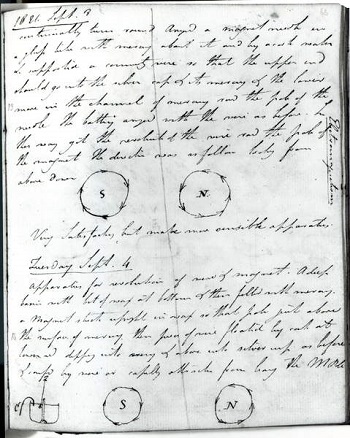 1821 Sept. 3
continually turn round. Arranged a magnet needle in
a glass tube with mercury about it and by a cork water
&c supported a connecting wire so that the upper end
should go into the silver cup & its mercury & the lower
move in the channel of mercury round the pole of the
needle. The battery arranged with the wire as before. In
this way got the revolution of the wire round the pole of
the magnet. The direction was as follows looking from
above down
S N
Very Satisfactory, but make more sensible apparatus.
Tuesday Sept. 4
Apparatus for revolution of wire & magnet. A deep
basin with bit of wax at bottom & then filled with mercury.
a Magnet stuck upright in wax so that pole just above
the surface of mercury then piece of wire floated by cork at
lower end dipping into mercy & above into silver cup as before
S N